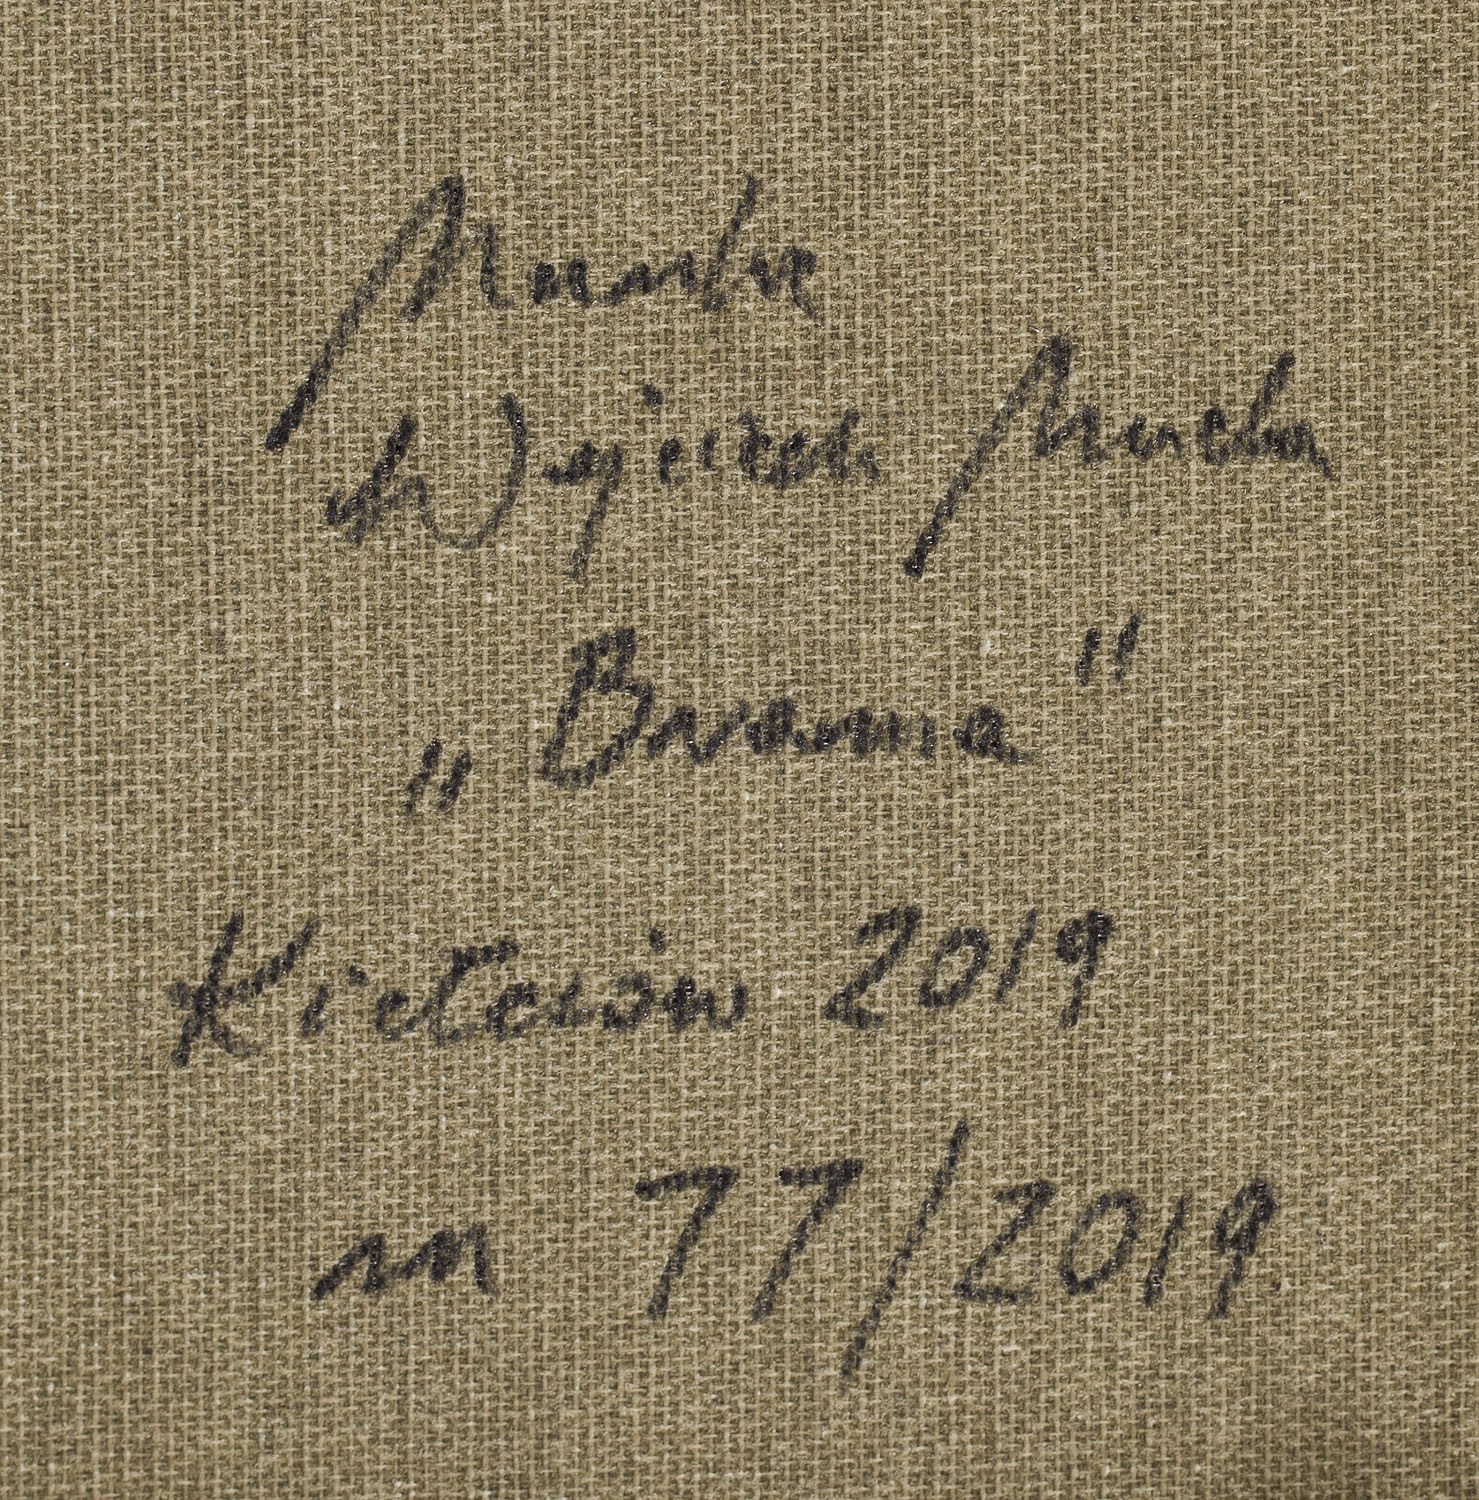 Mucha
Wojciech Mucha
„Brama"
Kiełczów 2019
nr 77/2019